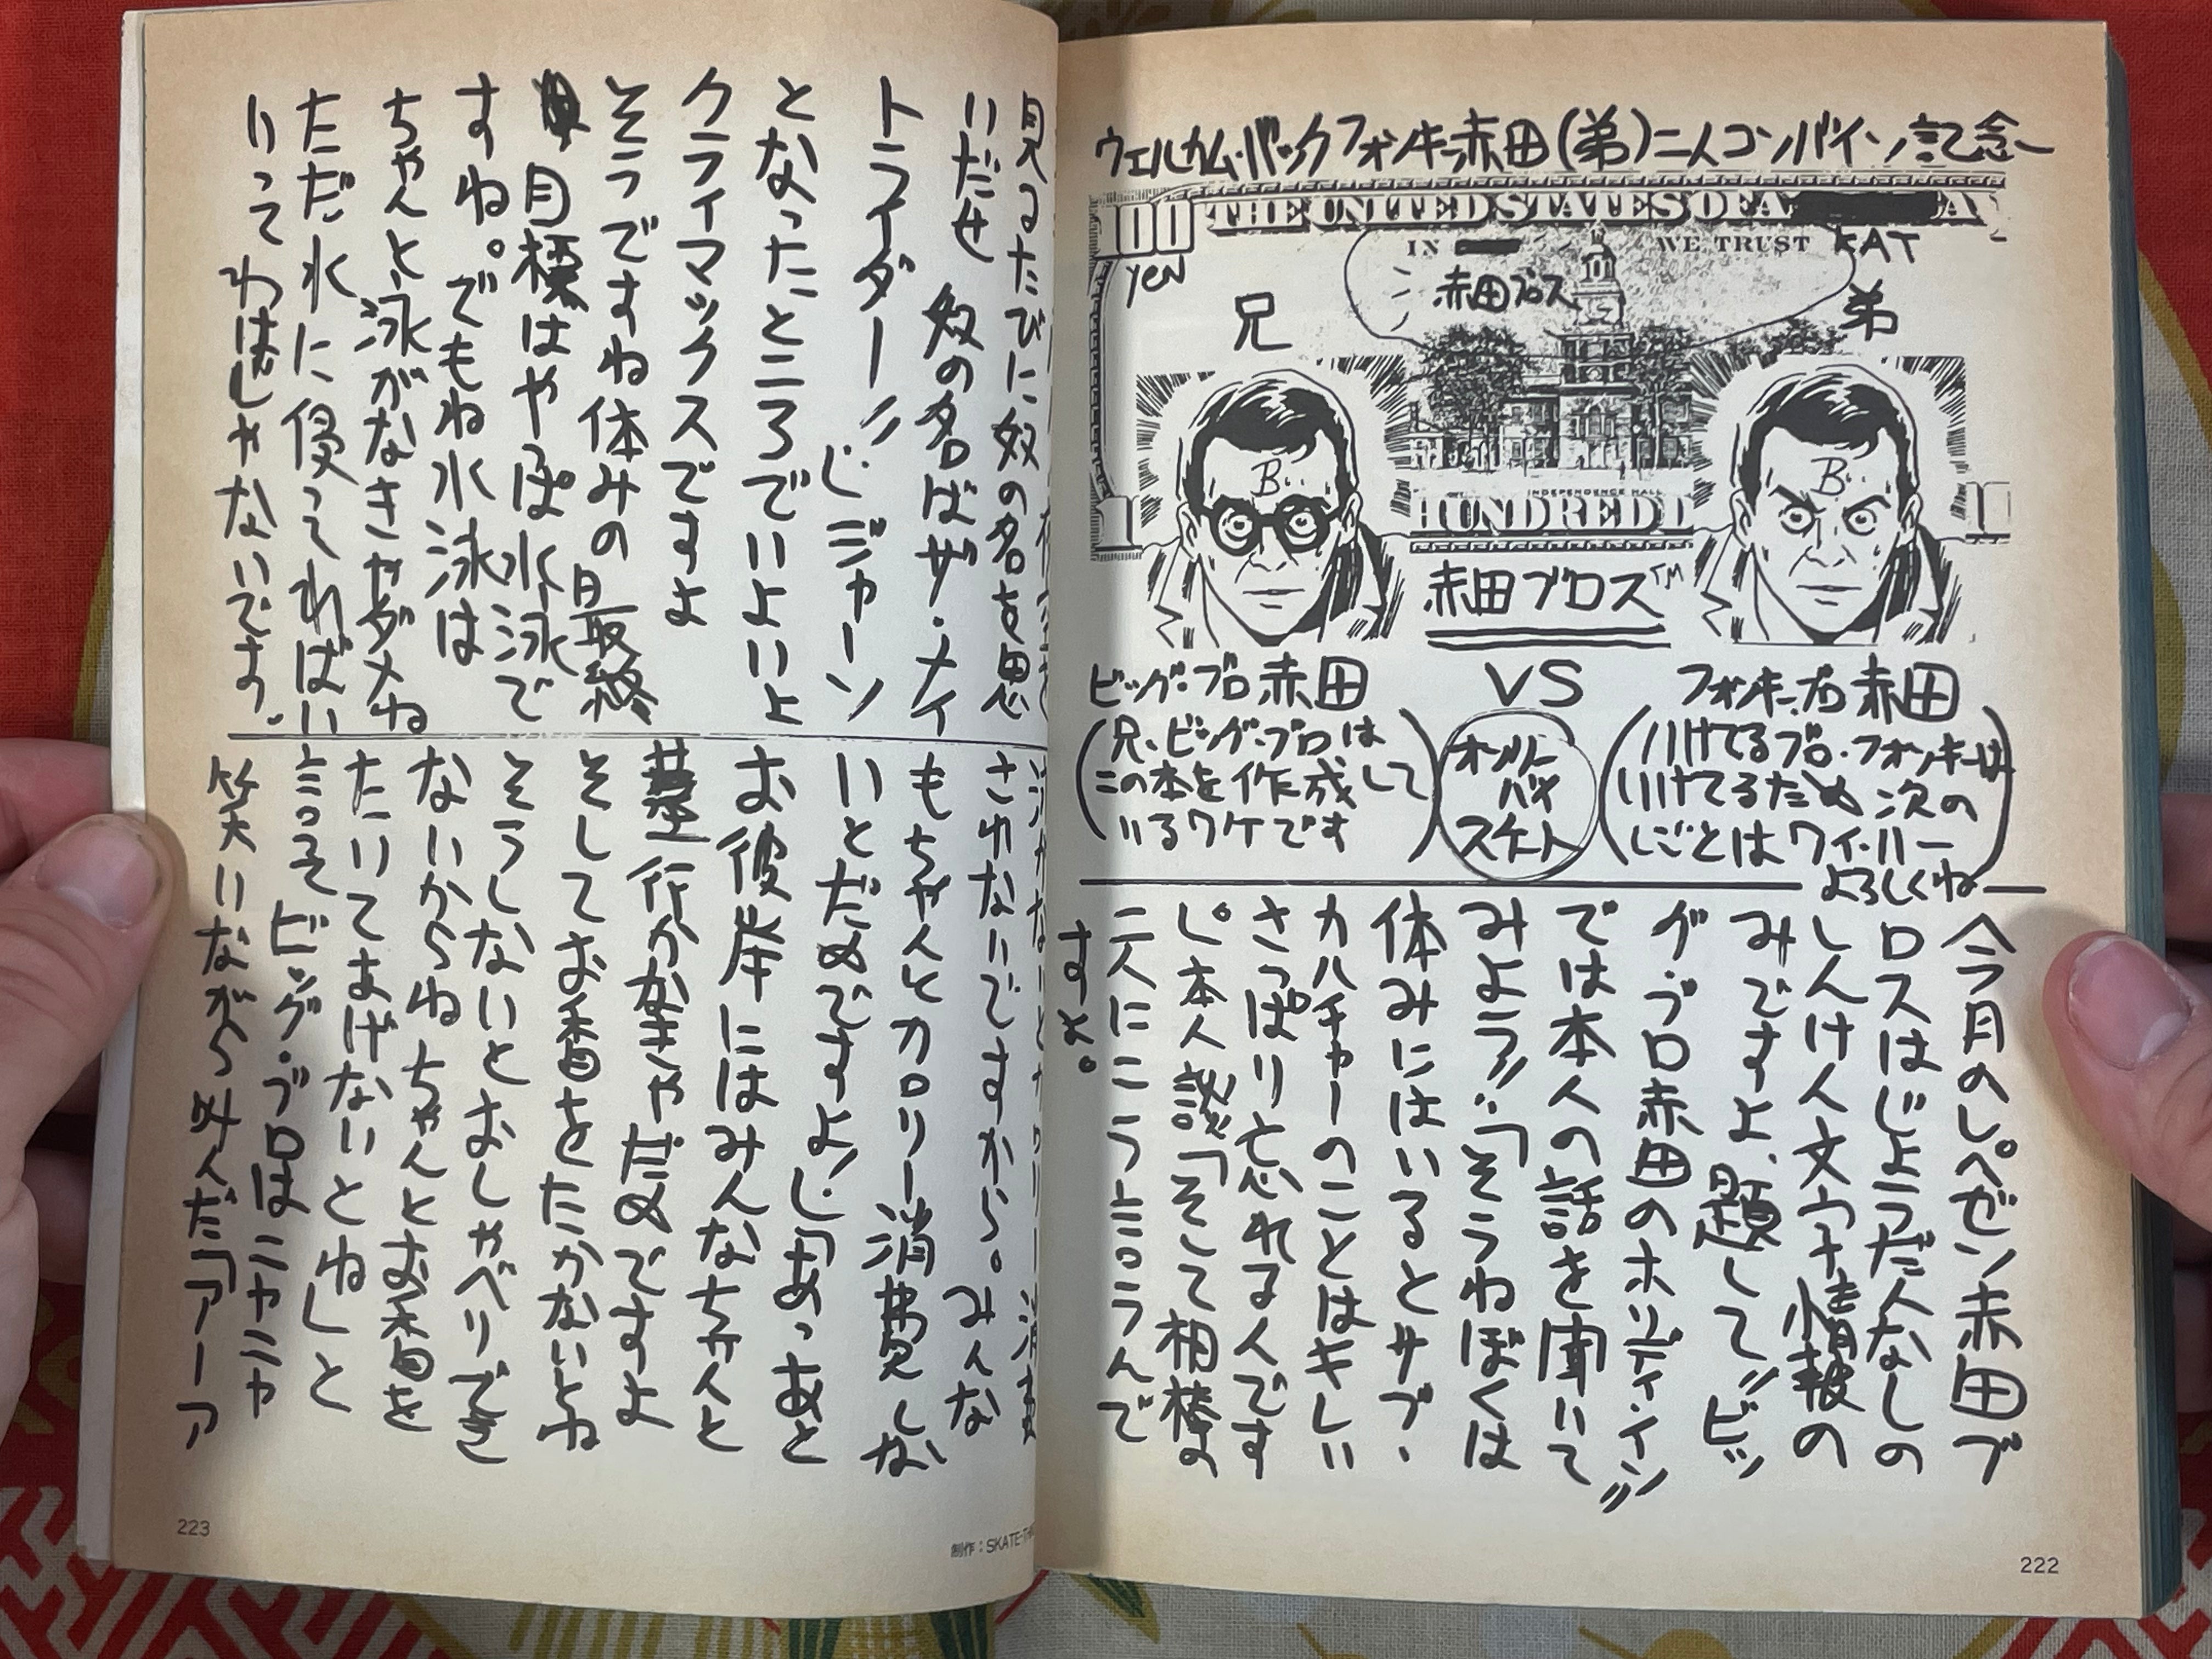 ウェルカム・バックフォンキー赤田(弟)二人コンバイン記念
100
YEN
THE UNITED STATES OF A
IN
WE TRUST
KAT
赤田ブロス
兄
弟
B
B
INDEPENDENCE HALL
HUNDRED D
赤田ブロス™
ビッグ・ブロ赤田
VS
フォンキー・ブロ赤田
(兄、ビッグ・ブロは
この本を作成して
いるワケです
オンリー
バイ
スケート
(いけてるブロ・フォンキーは
いけてるため次の
しごとはワイ・ハー
よろしくね)
今月のしペゼン赤田ブ
ロスはじょうだんなしの
しんけん文字情報の
みですよ、題して!!ビッ
グ・ブロ赤田のホリディ・イン!!
では本人の話を聞いて
みよう!!:「そうねぼくは
休みにはいるとサブ・
カルチャーのことはキレい
さっぱり忘れる人です
し゜本人談「そして相棒の
二人にこう言うんで
すよ。
見るたびに奴の名を思
いだせ 奴の名はザ・ナイ
トライダー!!」:ジャーン
となったところでいよいよ
クライマックスですよ
そうですね休みの最終
目標はやっぱ水泳で
すね。でもね水泳は
ちゃんと泳がなきゃダメね
ただ水に侵ってればい
いってわけじゃないです。
されないですから。みんな
もちゃんとカロリー消費しな
いとだめですよ!」「あっあと
お彼岸にはみんなちゃんと
墓行かなきゃだめですよ
そしてお香をたかないとね
そうしないとおしゃべりでき
ないからね ちゃんとお香を
たいてまげないとね」と
言うそビッグ・ブロはニャニャ
笑いながら叫んだ「アーア
223
制作：SKATE-TH
222